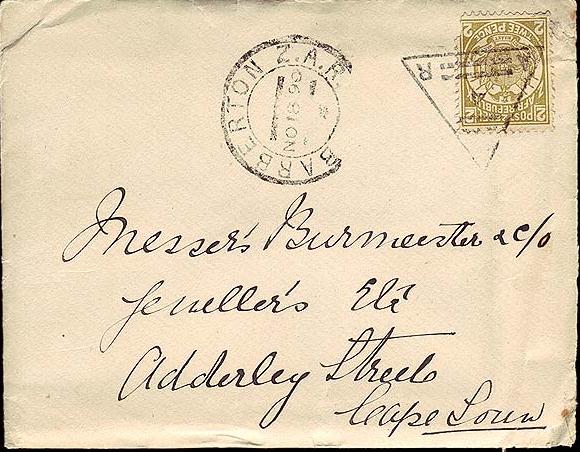 BARBERTON Z.A.R.
NO 18 90
TWEE PENCE
POSTZ
AFR. REPUBLIEK
2
2
2
2
Messer's Burmeister & C/o
Jeweller's Etc
Adderley Street
Cape Town